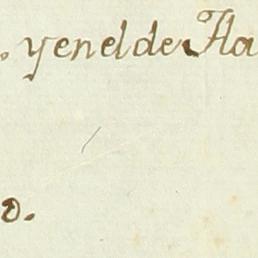 yenel de Ha
o.